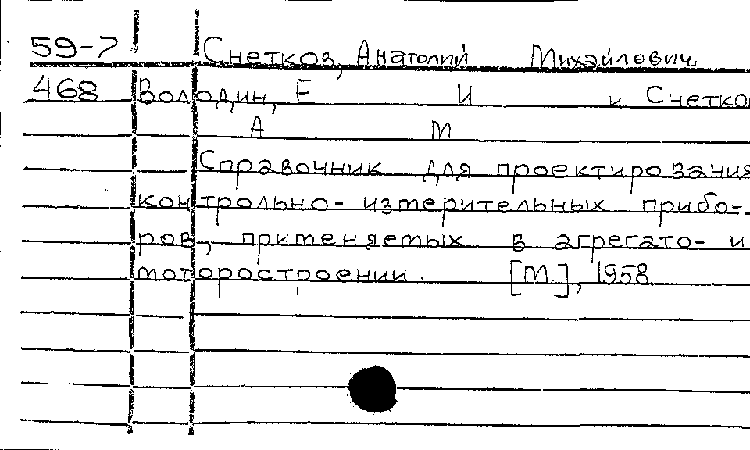 59-7 Снетков, Анатолий Михайлович
468 Володин, Е И и Снетко
А М
Справочник для проектирования
контрольно-измерительных прибо-
ров, применяемых в агрегато- и
моторостроении. [М.], 1958